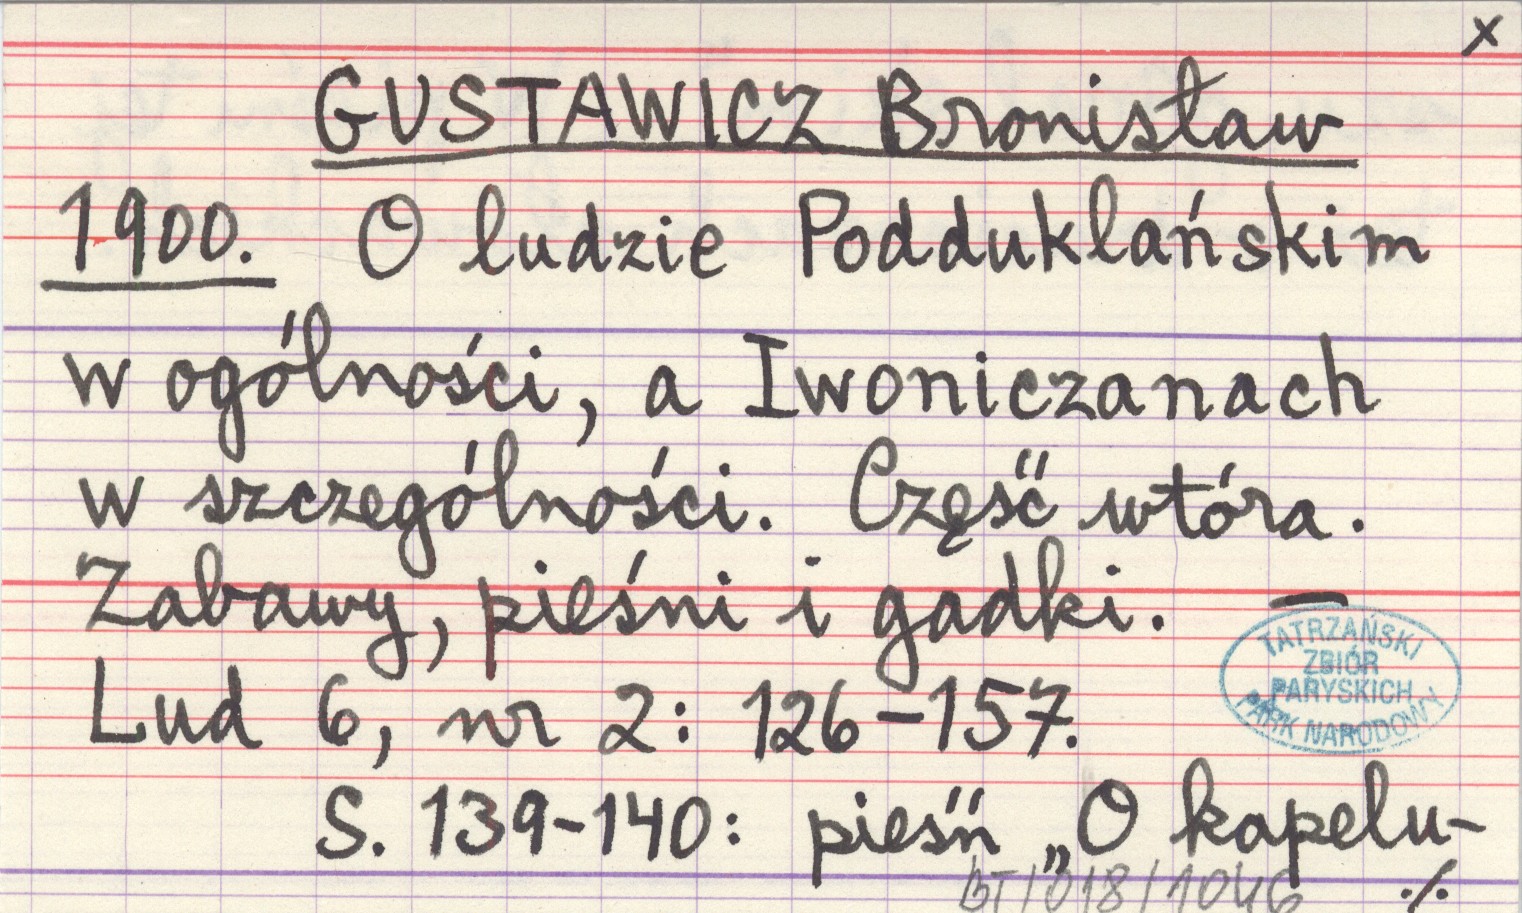 x
GUSTAWICZ Bronisław
1900. O ludzie Podduklańskim
w ogólności, a Iwoniczanach
w szczególności. Część wtóra.
Zabawy, pieśni i gadki. —
Lud 6, nr 2: 126-157.
TATRZAŃSKI
ZBIÓR
PARYSKICH
PARK NARODOWY
S. 139-140: pieśń „O kapelu-
BT/018/1046 ·/.